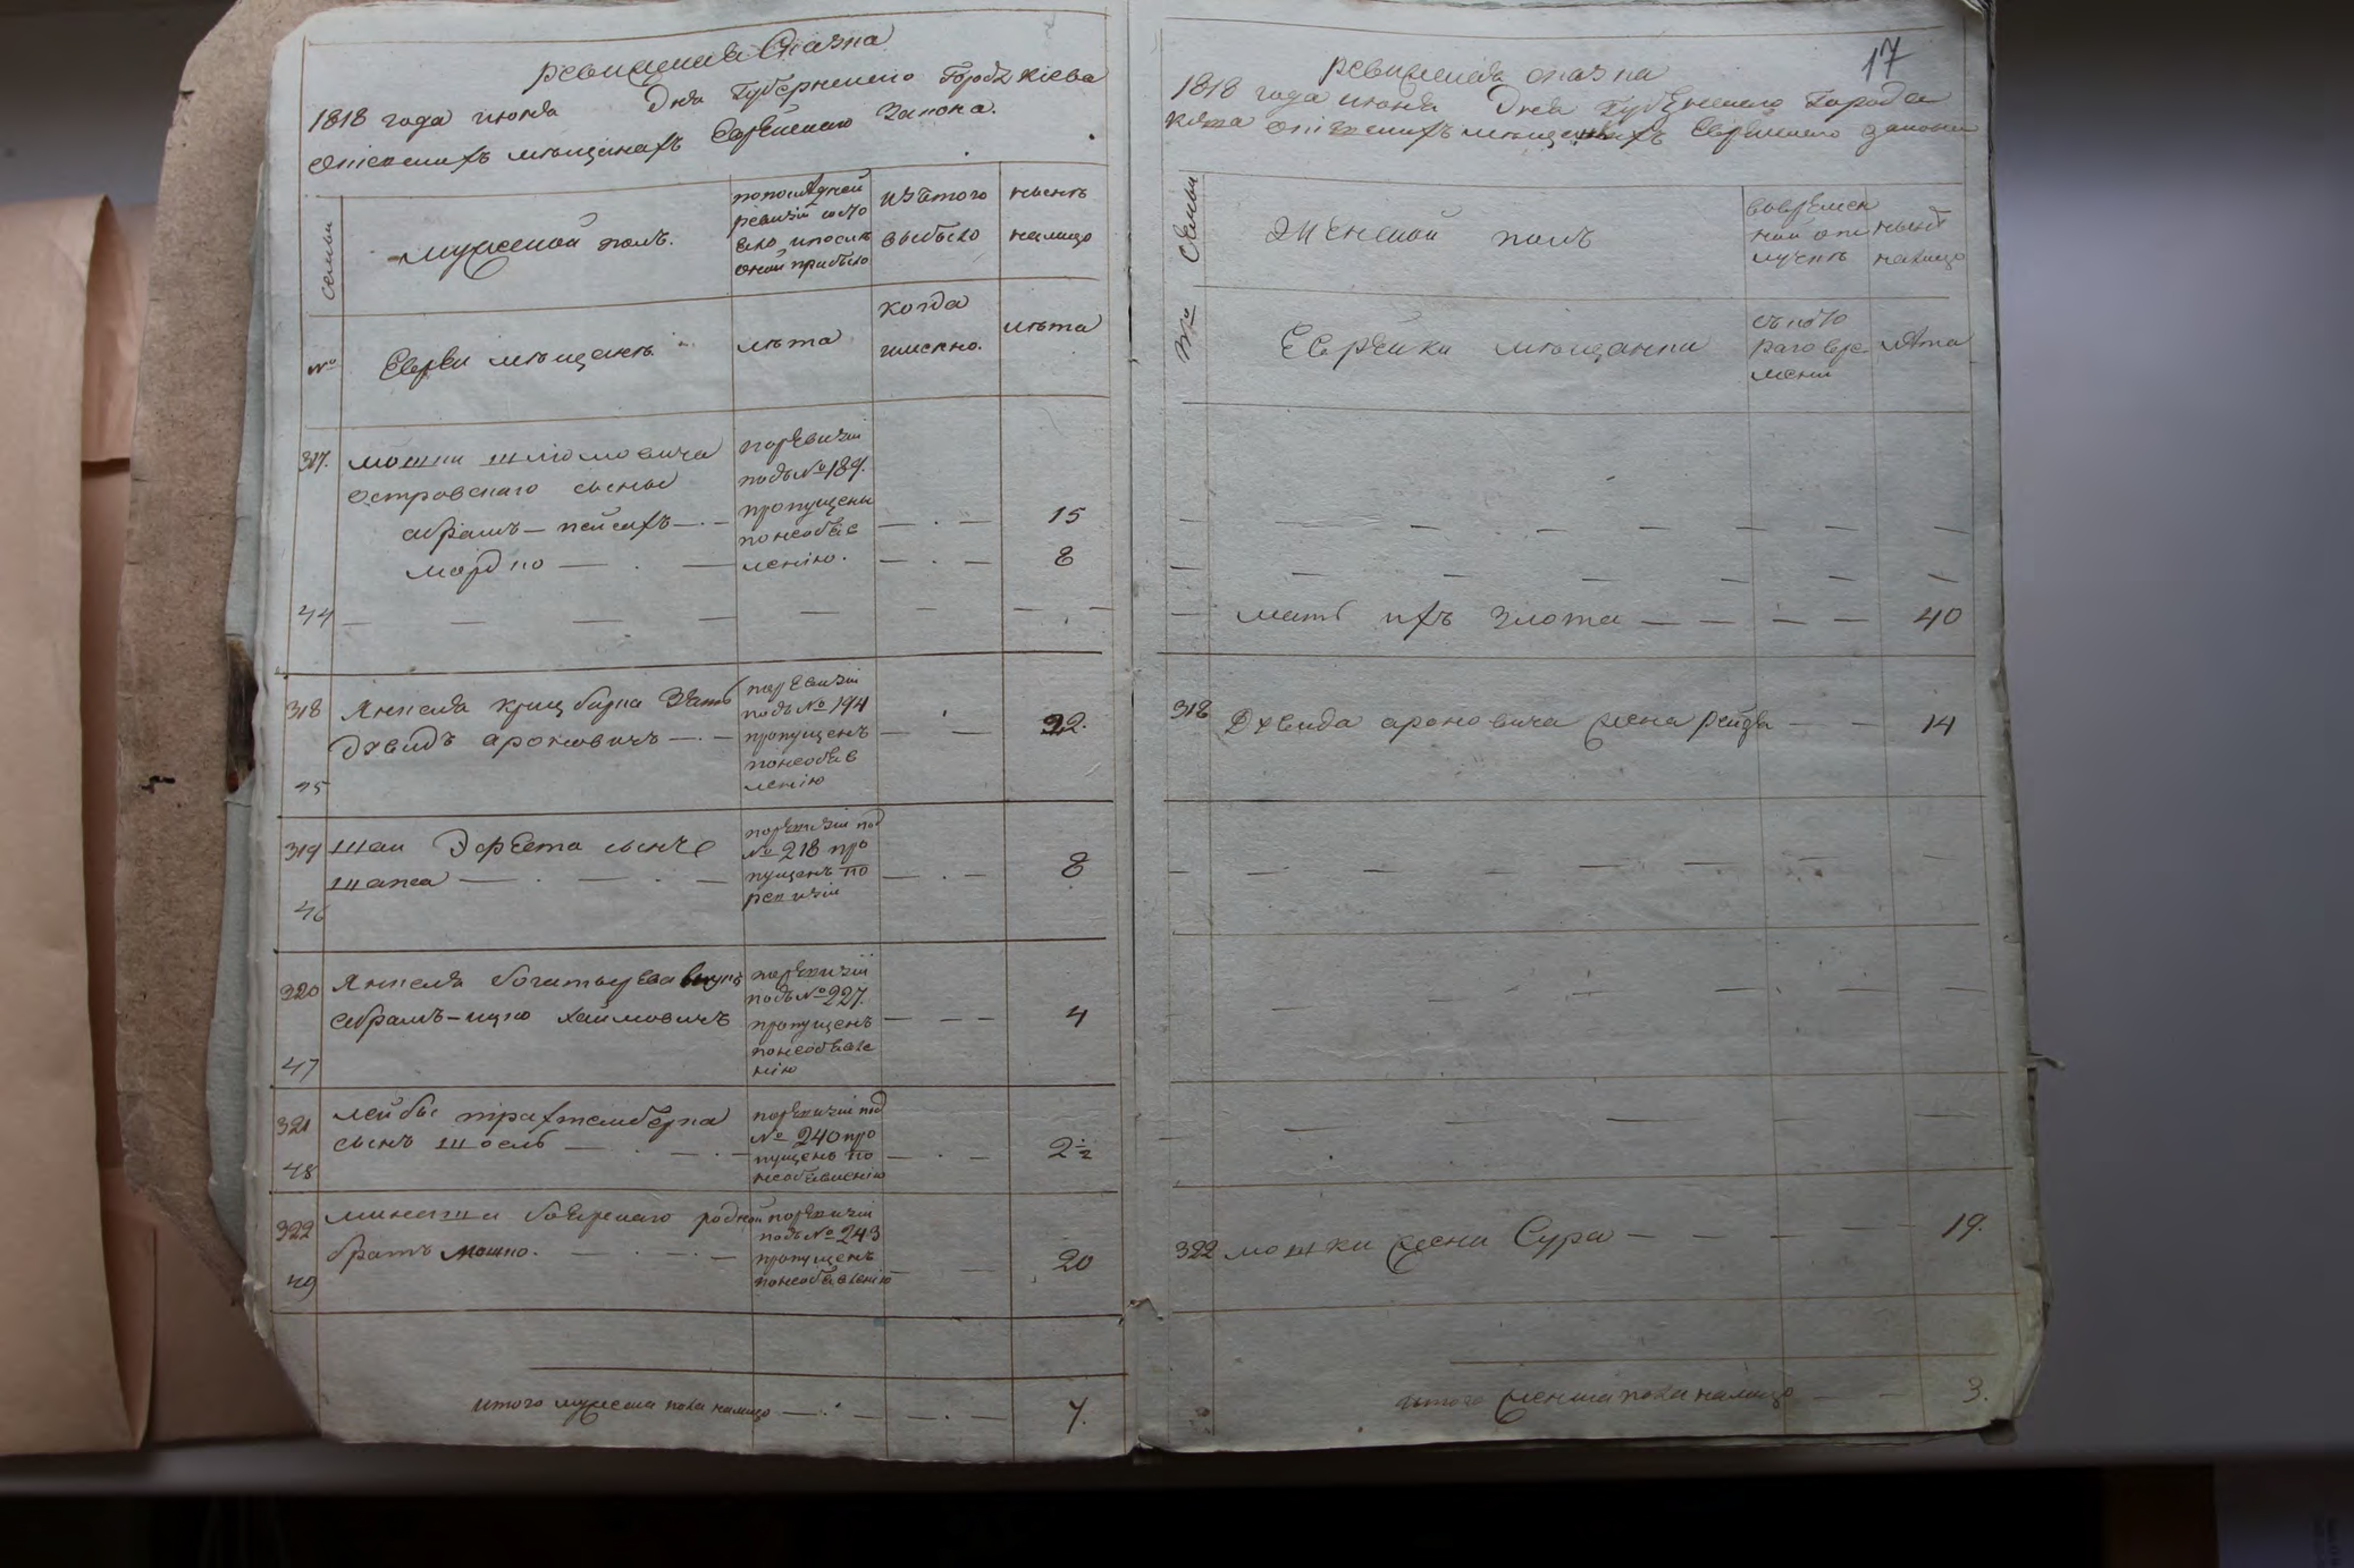 ревизская Сказка
1818 года июня Дня Губернскаго Города Кіева
о мѣщанахъ Еврейскаго Закона.
семьи
мужеской полъ.
по послѣдней
ревизіи состо
яло, и послѣ
оной прибыло
изъ того
выбыло
нынѣ
налицо
№
Евреи мѣщане
лѣта
когда
именно.
лѣта
317.
мошки шлiомовича
островскаго сыны
абрамъ – пейсахъ
мордко
по ревизіи
подъ № 189.
пропущены
по необъяв
ленію.
15
8
44
318
Янкеля зять
Давидъ ароновичъ
по ревизіи
подъ № 194
пропущенъ
по необъяв
ленію
22.
45
319
шаи сынъ
по ревизіи под
№ 218 про
пущенъ по
ревизіи
8
46
320
Янкеля богатырева внукъ
абрамъ – ицко хаимовичъ
по ревизіи
подъ № 227.
пропущенъ
по необъявле
нію
4
47
321
лейбы трахтемберга
сынъ
по ревизіи под
№ 240 про
пущенъ по
необъявленію
2½
48
322
родной
братъ мошко.
по ревизіи
подъ № 243
пропущенъ
по необъявленію
20
49
итого мужеска пола налицо
7.
17
ревизская сказка
1818 года июня Дня Губернскаго Города
Кіева мѣщанахъ Еврейскаго закона
№ семьи
Женской полъ
во времен
ной отлучкѣ
нынѣ
налицо
Еврейки мѣщанки
съ кото
раго вре
мени
лѣта
мать ихъ злота
40
318
Давида ароновича жена рейзя
14
322
мошки жена Сура
19.
итого женска пола налицо
3.